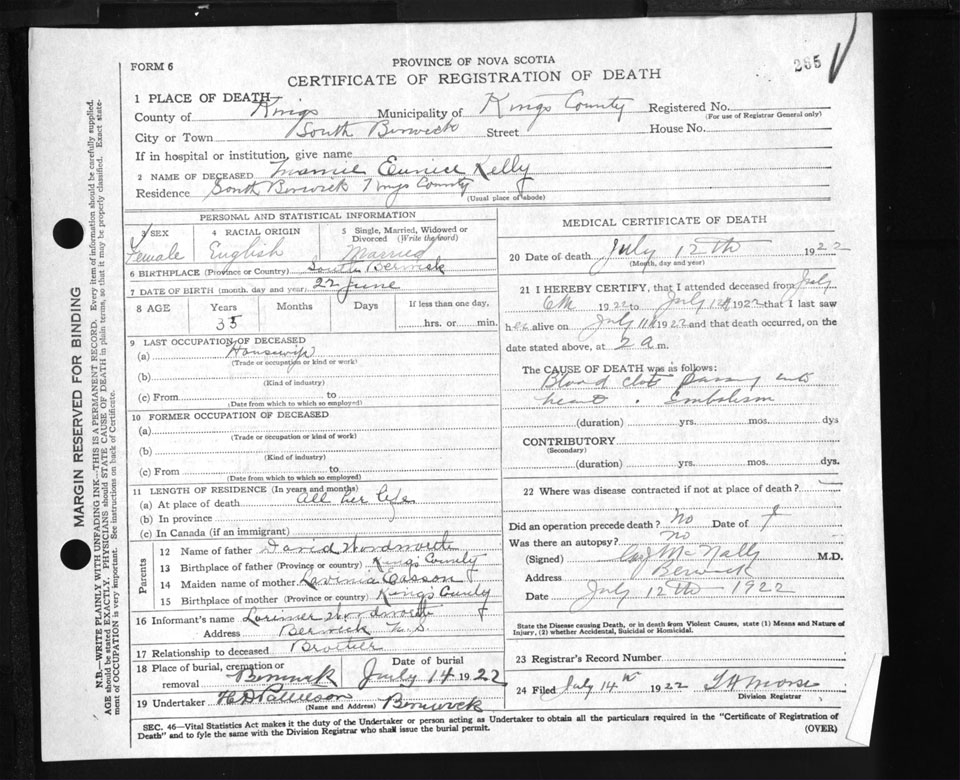 FORM 6
PROVINCE OF NOVA SCOTIA
265
CERTIFICATE OF REGISTRATION OF DEATH
1 PLACE OF DEATH
County of Kings Municipality of Kings County Registered No.
(For use of Registrar General only)
City or Town South Berwick Street House No.
If in hospital or institution, give name
2 NAME OF DECEASED Mamie Eunice Kelly
Residence South Berwick Kings County
(Usual place of abode)
PERSONAL AND STATISTICAL INFORMATION
3 SEX 4 RACIAL ORIGIN 5 Single, Married, Widowed or Divorced (Write the word)
Female English Married
6 BIRTHPLACE (Province or Country) South Berwick
7 DATE OF BIRTH (month, day and year) 22 June
8 AGE Years Months Days If less than one day,
35 hrs. or min.
9 LAST OCCUPATION OF DECEASED
(a) Housewife
(Trade or occupation or kind of work)
(b)
(Kind of industry)
(c) From to
(Date from which to which so employed)
10 FORMER OCCUPATION OF DECEASED
(a)
(Trade or occupation or kind of work)
(b)
(Kind of industry)
(c) From to
(Date from which to which so employed)
11 LENGTH OF RESIDENCE (In years and months)
(a) At place of death All her life
(b) In province
(c) In Canada (if an immigrant)
Parents
12 Name of father David Wordsworth
13 Birthplace of father (Province or country) Kings County
14 Maiden name of mother Lavinia Casson
15 Birthplace of mother (Province or country) Kings County
16 Informant's name Lorimer Wordsworth
Address Berwick N.S
17 Relationship to deceased Brother
18 Place of burial, cremation or removal Berwick Date of burial July 14 1922
19 Undertaker H D Pattelson Berwick
(Name and Address)
MEDICAL CERTIFICATE OF DEATH
20 Date of death July 12th 1922
(Month, day and year)
21 I HEREBY CERTIFY, that I attended deceased from July
6th 1922 to July 12th 1922 that I last saw
her alive on July 11th 1922 and that death occurred, on the
date stated above, at 2 a m.
The CAUSE OF DEATH was as follows:
Blood clot passing into
heart . Embolism
(duration) yrs. mos. dys
CONTRIBUTORY
(Secondary)
(duration) yrs. mos. dys.
22 Where was disease contracted if not at place of death?
Did an operation precede death? No Date of
Was there an autopsy? No
(Signed) McNally M.D.
Address Berwick
Date July 12th 1922
State the Disease causing Death, or in death from Violent Causes, state (1) Means and Nature of
Injury, (2) whether Accidental, Suicidal or Homicidal.
23 Registrar's Record Number
24 Filed July 14th 1922 Morse
Division Registrar
SEC. 46—Vital Statistics Act makes it the duty of the Undertaker or person acting as Undertaker to obtain all the particulars required in the "Certificate of Registration of
Death" and to fyle the same with the Division Registrar who shall issue the burial permit. (OVER)
MARGIN RESERVED FOR BINDING
N.B.—WRITE PLAINLY WITH UNFADING INK—THIS IS A PERMANENT RECORD. Every item of information should be carefully supplied.
AGE should be stated EXACTLY. PHYSICIANS should STATE CAUSE OF DEATH in plain terms, so that it may be properly classified. Exact state-
ment of OCCUPATION is very important. See instructions on back of Certificate.